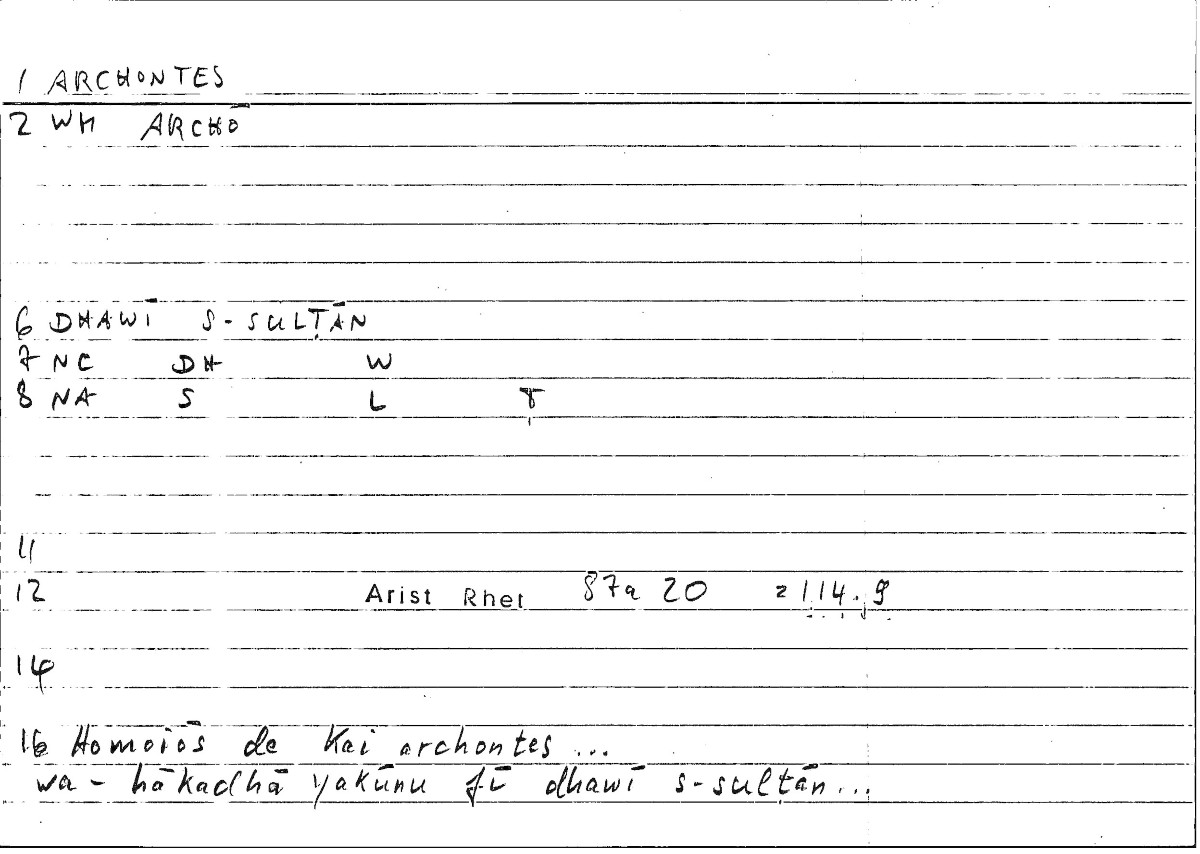 1 ARCHONTES
2 WH ARCHŌ
6 DHAWĪ S-SULṬĀN
7 NC DH W
8 NA S L Ṭ
11
12 Arist Rhet 87a 20 = 114.9
14
16 Homoiōs de kai archontes ...
wa-hākadhā yakūnu fī dhawī s-sulṭān ...